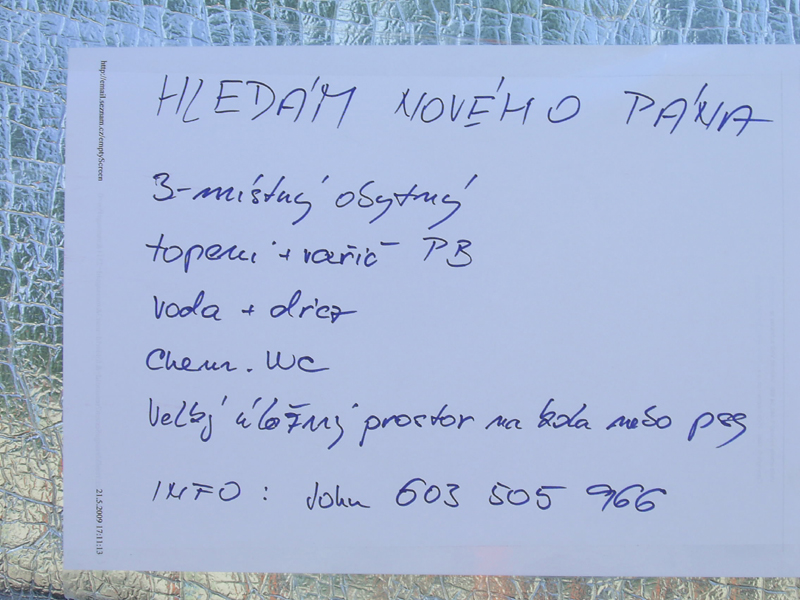 http://email.seznam.cz/emptyScreen
HLEDÁM NOVÉHO PÁNA
3-místný obytný
topení + vařič PB
voda + dřez
Chem. WC
Velký úložný prostor na kola nebo psy
INFO : John 603 505 966
21.5.2009 17:11:13